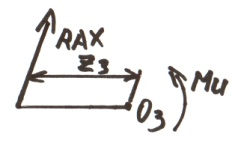 RAX
Z3
O3
Mu